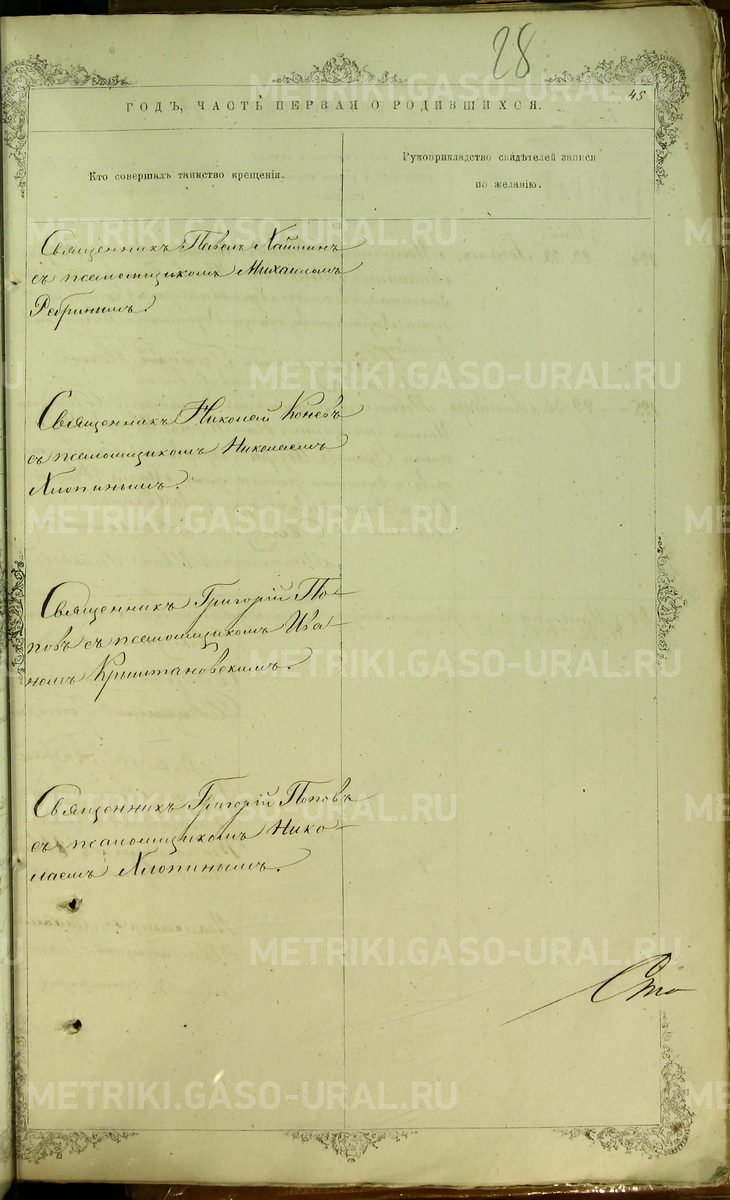 28
45
ГОДЪ, ЧАСТЬ ПЕРВАЯ О РОДИВШИХСЯ.
Кто совершалъ таинство крещенія.
Рукоприкладство свидѣтелей записи
по желанію.
Священникъ Павелъ Хайминъ
съ псаломщикомъ Михаиломъ
Ребринымъ.
Священникъ Николай Коневъ
съ псаломщикомъ Николаемъ
Хлопинымъ.
Священникъ Григорій По-
повъ съ псаломщикомъ Ива-
номъ Крыштановскимъ.
Священникъ Григорій Поповъ
съ псаломщикомъ Нико-
лаемъ Хлопинымъ.
METRIKI.GASO-URAL.RU